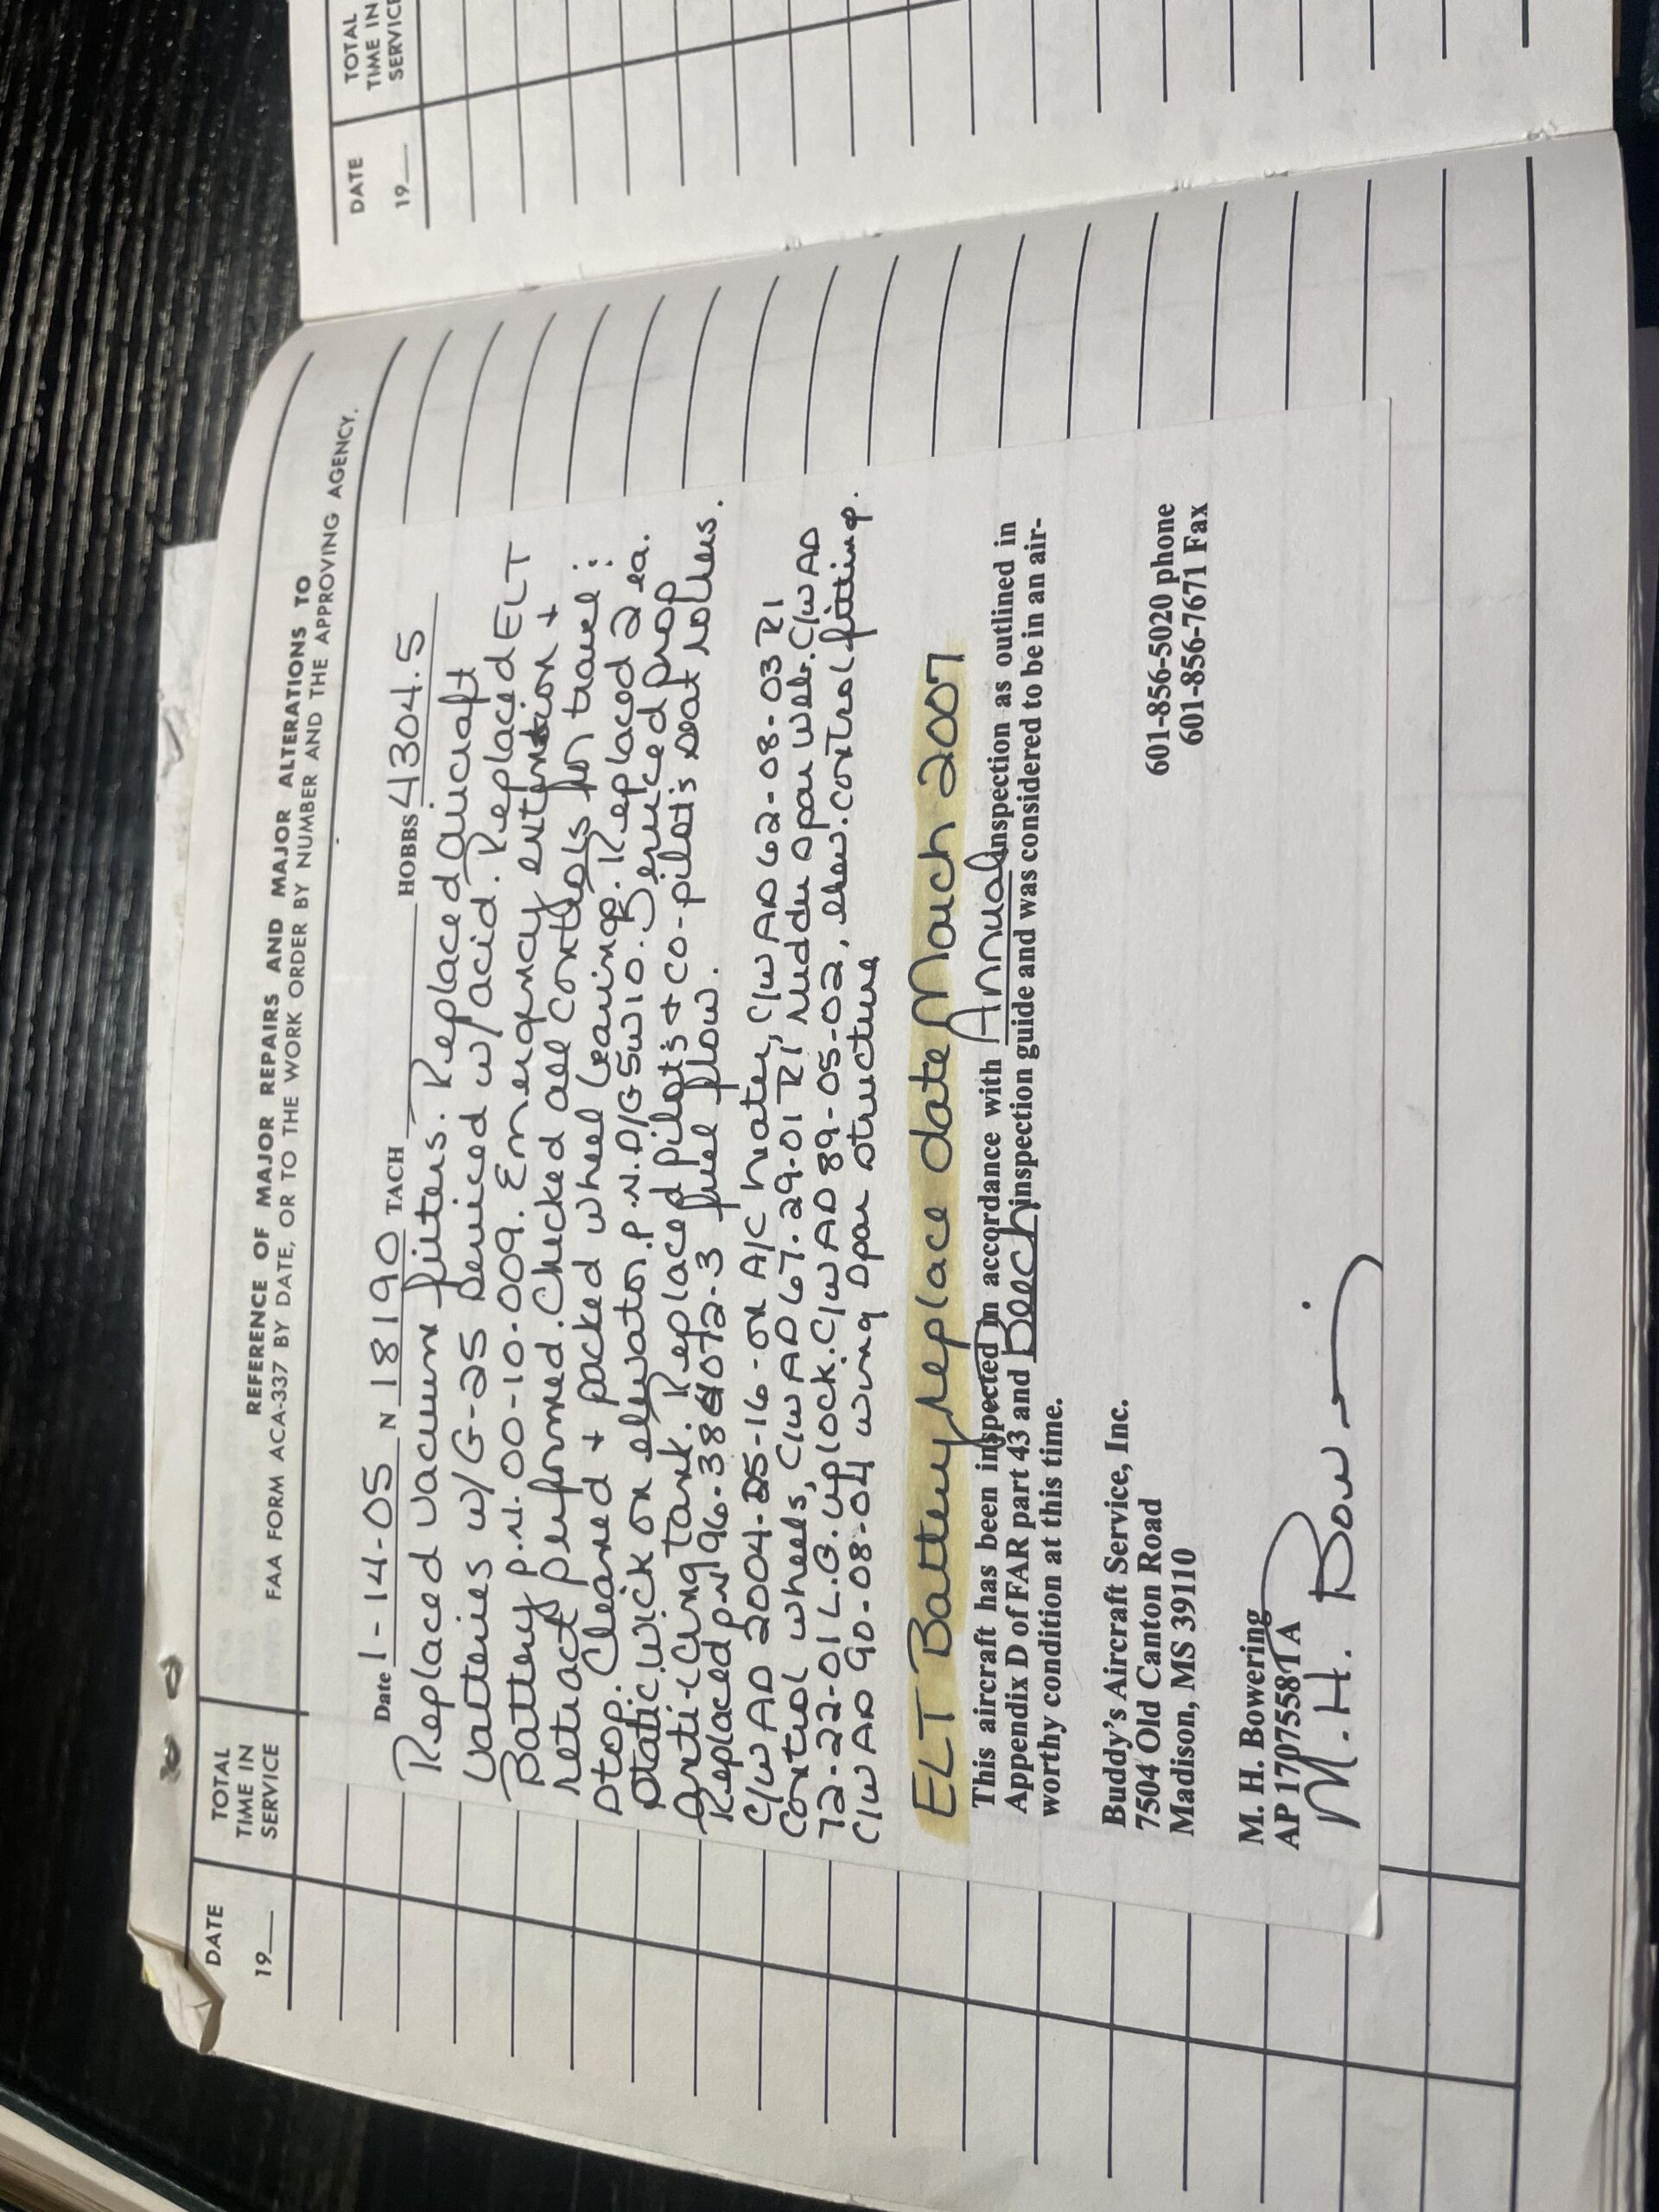 DATE
19__
TOTAL
TIME IN
SERVICE
REFERENCE OF MAJOR REPAIRS AND MAJOR ALTERATIONS TO
FAA FORM ACA-337 BY DATE, OR TO THE WORK ORDER BY NUMBER AND THE APPROVING AGENCY.
Date 1-14-05 N 18190 TACH ____ HOBBS 4304.5
Replaced vacuum filters. Replaced aircraft
batteries w/G-25 serviced w/acid. Replaced ELT
Battery p.n. 00-10-009. Emergency extention +
retract performed. Checked all controls for travel :
stop. Cleaned + packed wheel bearings. Replaced 2 ea.
static wick on elevator. p.n. D/G5W10. Serviced prop
Anti-icing tank. Replaced pilot's + co-pilot's seat rollers.
Replaced p.n. fuel flow.
C/W AD 2004-25-16-on A/C heater, C/W AD 62-08-03 R1
Control wheels, C/W AD 67-29-01 R1 rudder spar web. C/W AD
72-22-01 L.G. uplock. C/W AD 89-05-02, elev. control fitting.
C/W AD 90-08-04 wing spar structure
ELT Battery replace date March 2007
This aircraft has been inspected in accordance with Annual inspection as outlined in
Appendix D of FAR part 43 and Beech inspection guide and was considered to be in an air-
worthy condition at this time.
Buddy's Aircraft Service, Inc.
7504 Old Canton Road
Madison, MS 39110
601-856-5020 phone
601-856-7671 Fax
M. H. Bowering
AP 1707558 IA
M. H. Bow
DATE
19__
TOTAL
TIME IN
SERVICE